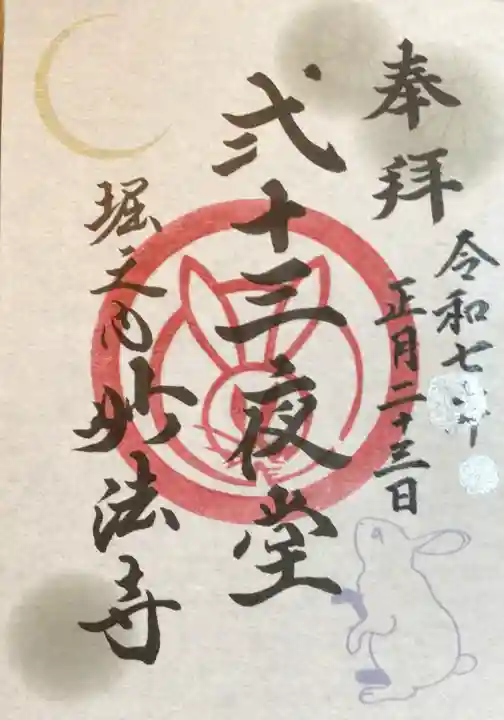 奉拝
令和七年
正月二十三日
弐十三夜堂
堀之内妙法寺